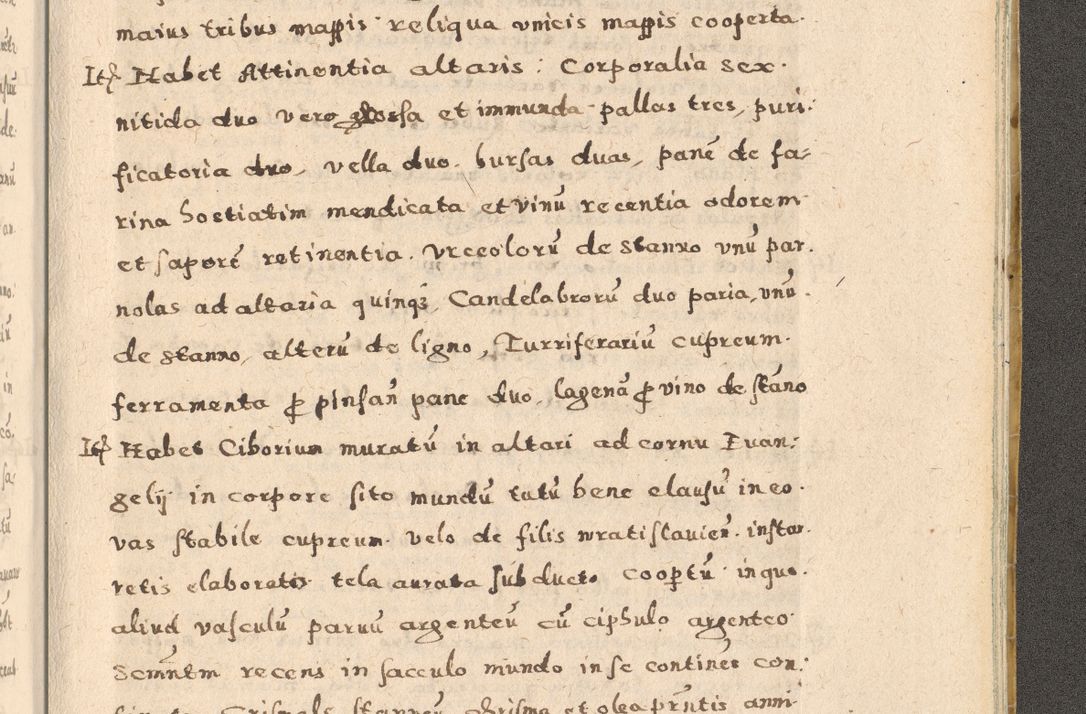 maius tribus mappis reliqua unicis mappis cooperta.
Itē Habet Attinentia altaris: Corporalia sex.
nitida duo vero grossa et immunda pallas tres, puri:
ficatoria duo, vella duo. bursas duas, panē de fa:
rina hostiatim mendicata et vinū recentia odorem
et saporē retinentia. Urceolorū de stanno unū par.
nolas ad altaria quinqȝ, Candelabrorū duo paria, unū.
de stanno, alterū de ligno, Turriferariū cupreum.
ferramenta ꝓ pinsan̄ pane duo, lagenā ꝓ vino de stāno
Itē Habet Ciborium muratū in altari ad cornu Euan:
gelij in corpore sito mundū tutū bene clausū in eo.
vas stabile cupreum. velo de filis wratislauien̄. instar.
retis elaboratis tela aurata subducto coopertū in quo.
aliud vasculū paruū argenteū cū ciphulo argenteo
recens in sacculo mundo in se continet con:
Crismale stanneū chrisma et olea pn̄tis anni